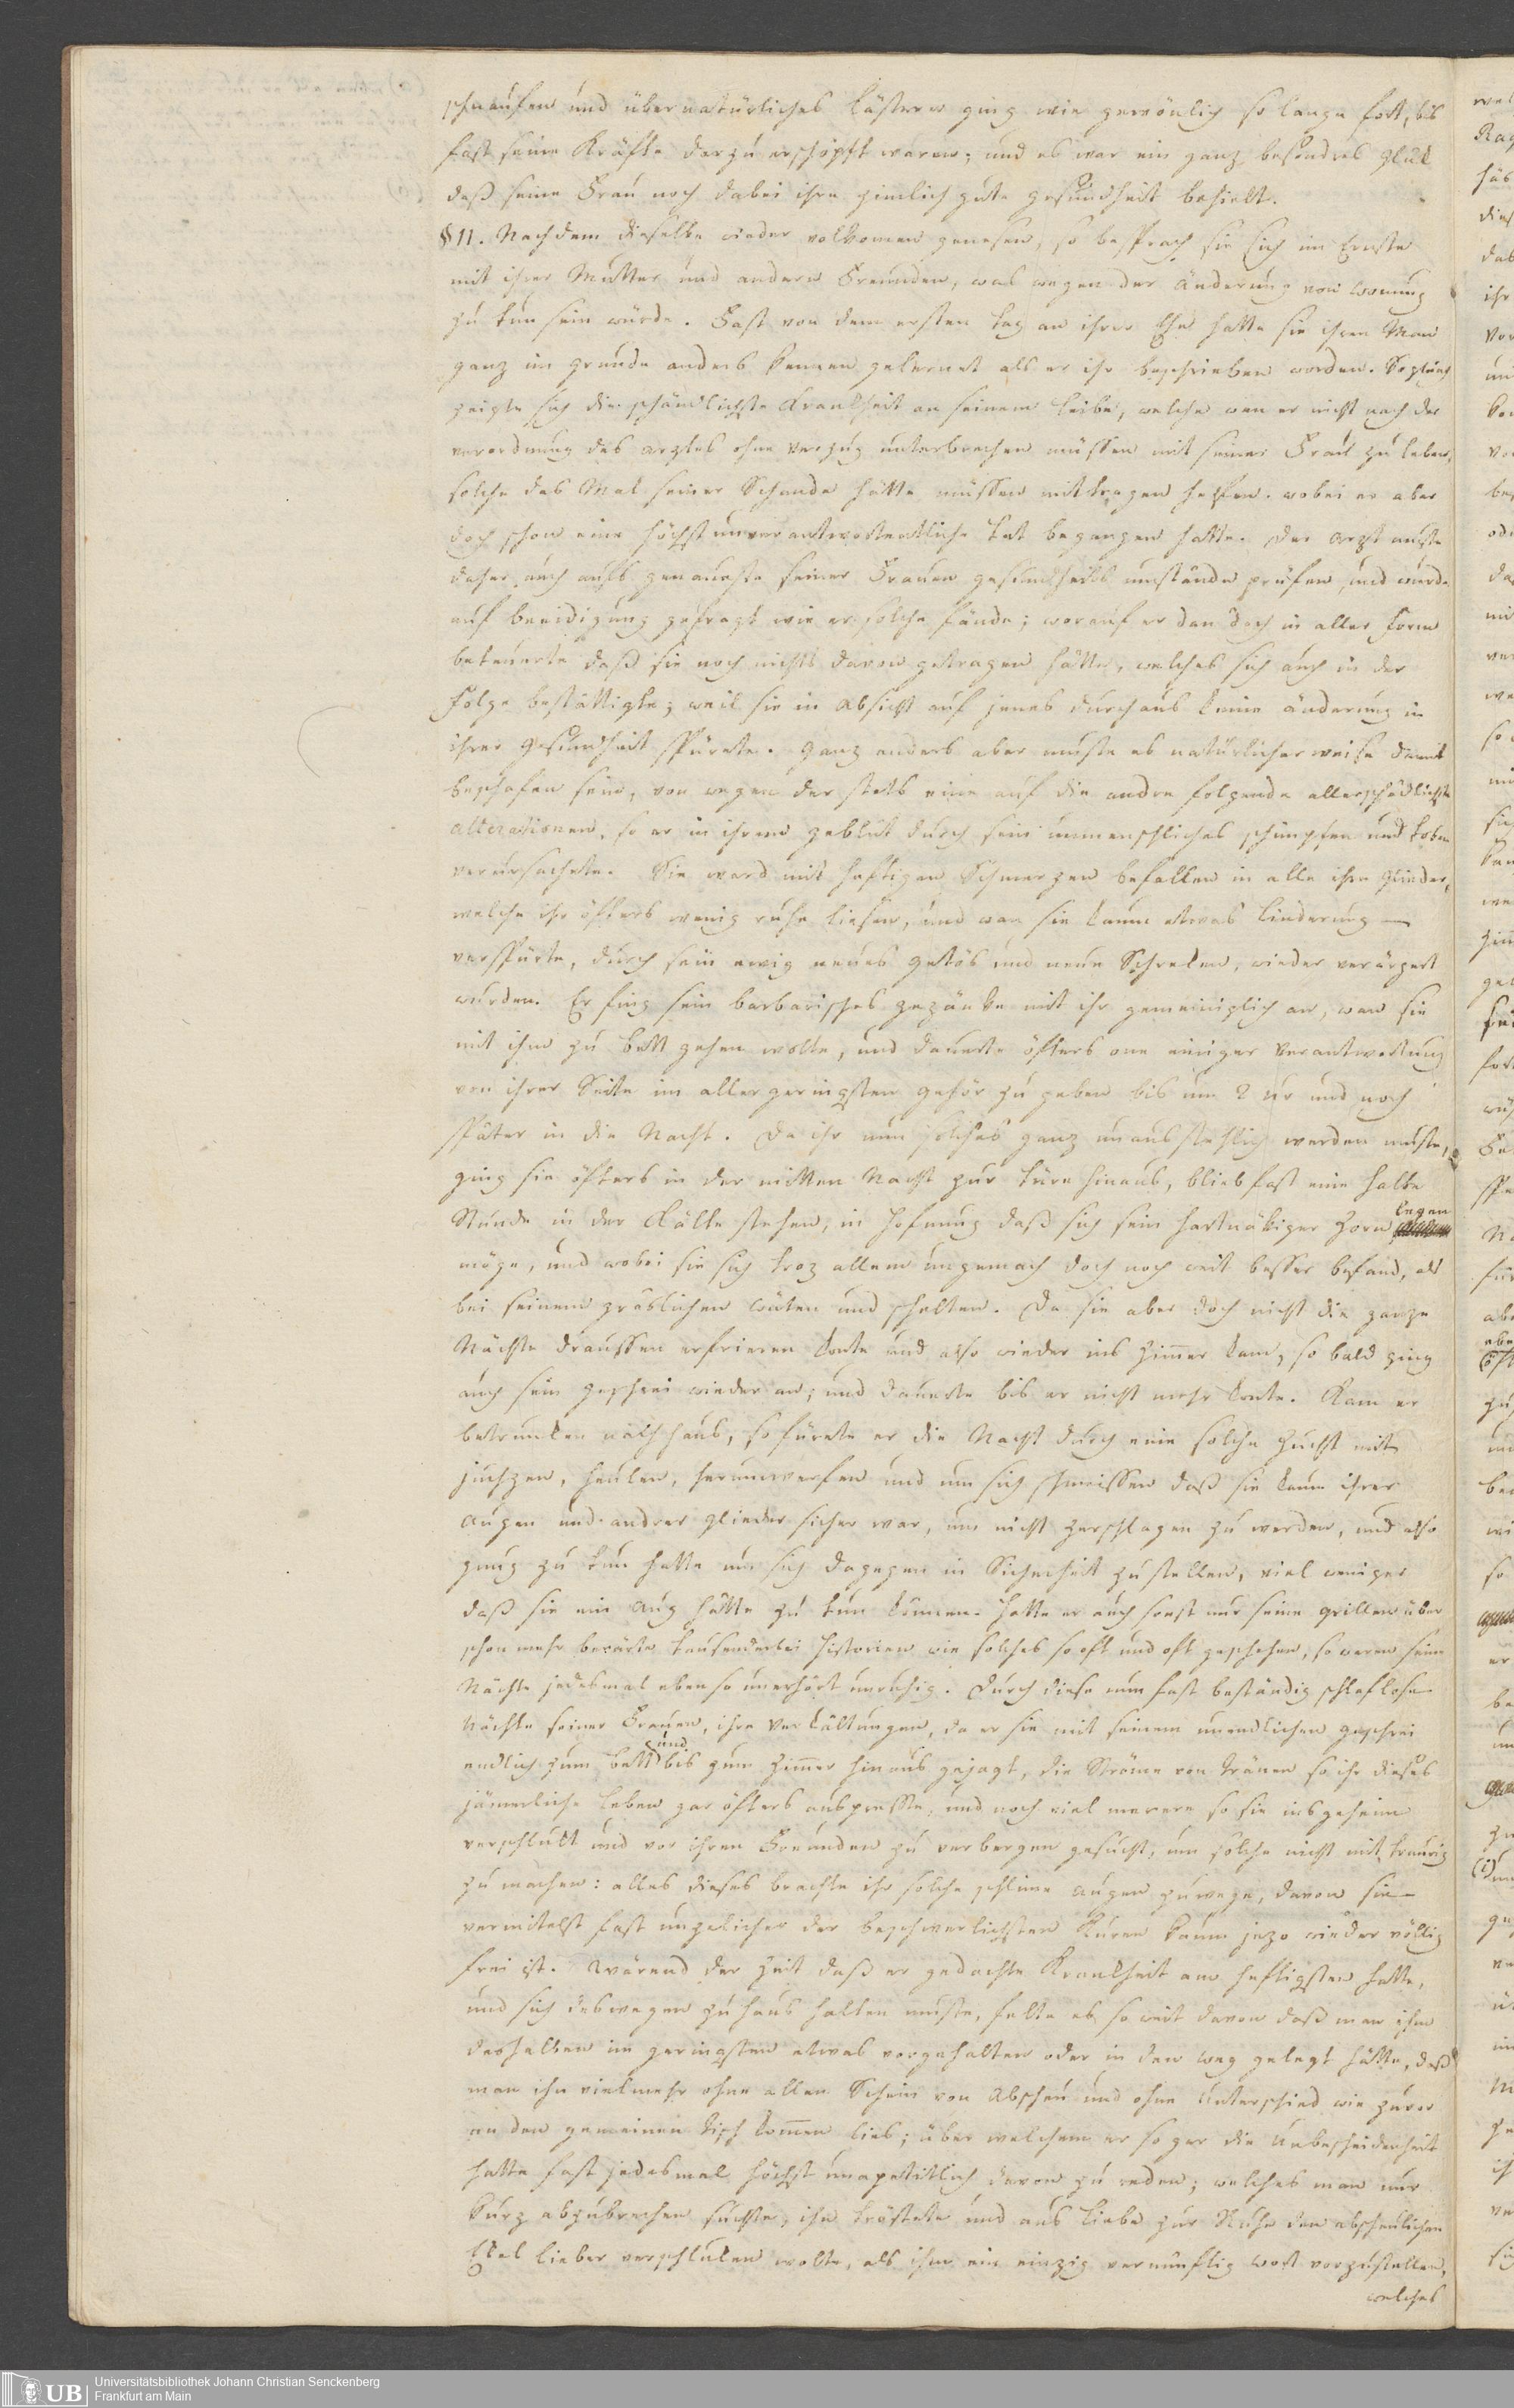 schnaufen und übernatürliches Lästern ging wie gewönlich so lange fort, bis
fast seine Kräfte darzu erschöpft waren; und es war ein ganz besondres Glük
daß seine Frau noch dabei ihre zimlich gute gesundheit behielt.
§ 11. Nachdem dieselbe wieder volkomen genesen, so besprach sie sich im Ernste
mit ihrer Mutter und andern Freunden, was wegen der änderung von Wonung
zu tun sein würde. Fast von dem ersten tag an ihrer Ehe hatte sie ihren Man
ganz im grunde anders kennen gelernet als er ihr beschrieben worden. So gleich
zeigte sich die schändlichste Krankheit an seinem leibe, welche wan er nicht nach der
verordnung des arztes ohne verzug unterbrechen müssen mit seiner Frau zu leben,
solche das Mal seiner Schande hätte müssen mittragen helfen. wobei er aber
doch schon eine höchstunverantwortentliche tat begangen hatte. Der arzt muste
daher auch aufs genaueste seiner Frauen gesundheits umstände prüfen, und wurde
auf beeidigung gefragt wie er solche fände; worauf er dan doch in aller form
beteuerte daß sie noch nichts davon getragen hätte, welches sich auch in der
Folge bestättigte; weil sie in absicht auf jenes durchaus keine änderung in
ihrer gesundheit spürete. ganz anders aber muste es natürlicher weise damit
beschafen sein, von wegen der stets eine auf die andre folgende allerschädlichste
alterationen, so er in ihrem geblüt durch sein unmenschliches schimpfen und toben
verursachete. Sie ward mit heftigen Schmerzen befallen in alle ihre glieder,
welche ihr öfters wenig ruhe liesen, und wan sie kaum etwas linderung
verspürte, durch sein ewig neues getös und neue Schreken, wieder verärgert
wurden. Er fing sein barbarisches gezänke mit ihr gemeiniglich an, wan sie
mit ihm zu bett gehen wolte, und dauerte öfters one einiger verantwortung
von ihrer Seite im allergeringsten gehör zu geben bis um 2 ur und noch
später in die Nacht. Da ihr nun solches ganz unausstehlich werden muste,
ging sie öfters in der mitten Nacht zur türe hinaus, blieb fast eine halbe
Stunde in der Kälte stehen, in hofnung daß sich sein hartnäkiger zorn legen
möge, und wobei sie sich troz allem ungemach doch noch weit besser befand, als
bei seinem gräslichen wüten und schelten. Da sie aber doch nicht die ganze
Nächte draussen erfrieren konte und also wieder ins zimer kam, so bald ging
auch sein geschrei wieder an; und dauerte bis er nicht mehr konte. Kam er
betrunken nach haus, so fürete er die Nacht durch eine solche zucht mit
juchzen, heulen, herumwerfen und um sich schmeissen daß sie kaum ihrer
augen und andrer glieder sicher war, um nicht zerschlagen zu werden, und also
gnug zu tun hatte um sich dagegen in Sicherheit zu stellen, viel weniger
daß sie ein aug hätte zu tun können. Hatte er auch sonst nur seine grillen über
schon mehr berürte tausenderlei historien wie solches so oft und oft geschehen, so waren seine
Nächte jedesmal ebenso unerhört unruhig. Durch diese nun fast beständig schlaflose
Nächte seiner Frauen, ihre Verkältungen, da er sie mit seinem unendlichen geschrei
endlich zum bett und bis zum zimer hinaus gejagt, die Ströme von tränen so ihr dieses
jämerliche leben gar öfters auspresste, und noch viel merere so sie insgeheim
verschlukt und vor ihren Freunden zu verbergen gesucht, um solche nicht mit traurig
zu machen: alles dieses brachte ihr solche schlime augen zuwege, davon sie
vermitelst fast unzelicher der beschwerlichsten Kuren kaum jezo wieder völlig
frei ist. Wärend der zeit daß er gedachte Krankheit am heftigsten hatte,
und sich deswegen zu haus halten muste, felte es so weit davon daß man ihm
deshalben im geringsten etwas vorgehalten oder in den weg gelegt hätte, daß
man ihn vielmehr ohne allen Schein von Abscheu und ohne Unterschied wie zuvor
an den gemeinen tisch komen lies; über welchem er so gar die Unbescheidenheit
hatte fast jedesmal höchst unapetitlich davon zu reden; welches man nur
kurz abzubrechen suchte, ihn tröstete und aus liebe zur Ruhe den abscheulichen
Ekel lieber verschluken wolte, als ihm ein einzig vernünftig wort vorzustellen,
welches
UB
Universitätsbibliothek Johann Christian Senckenberg
Frankfurt am Main